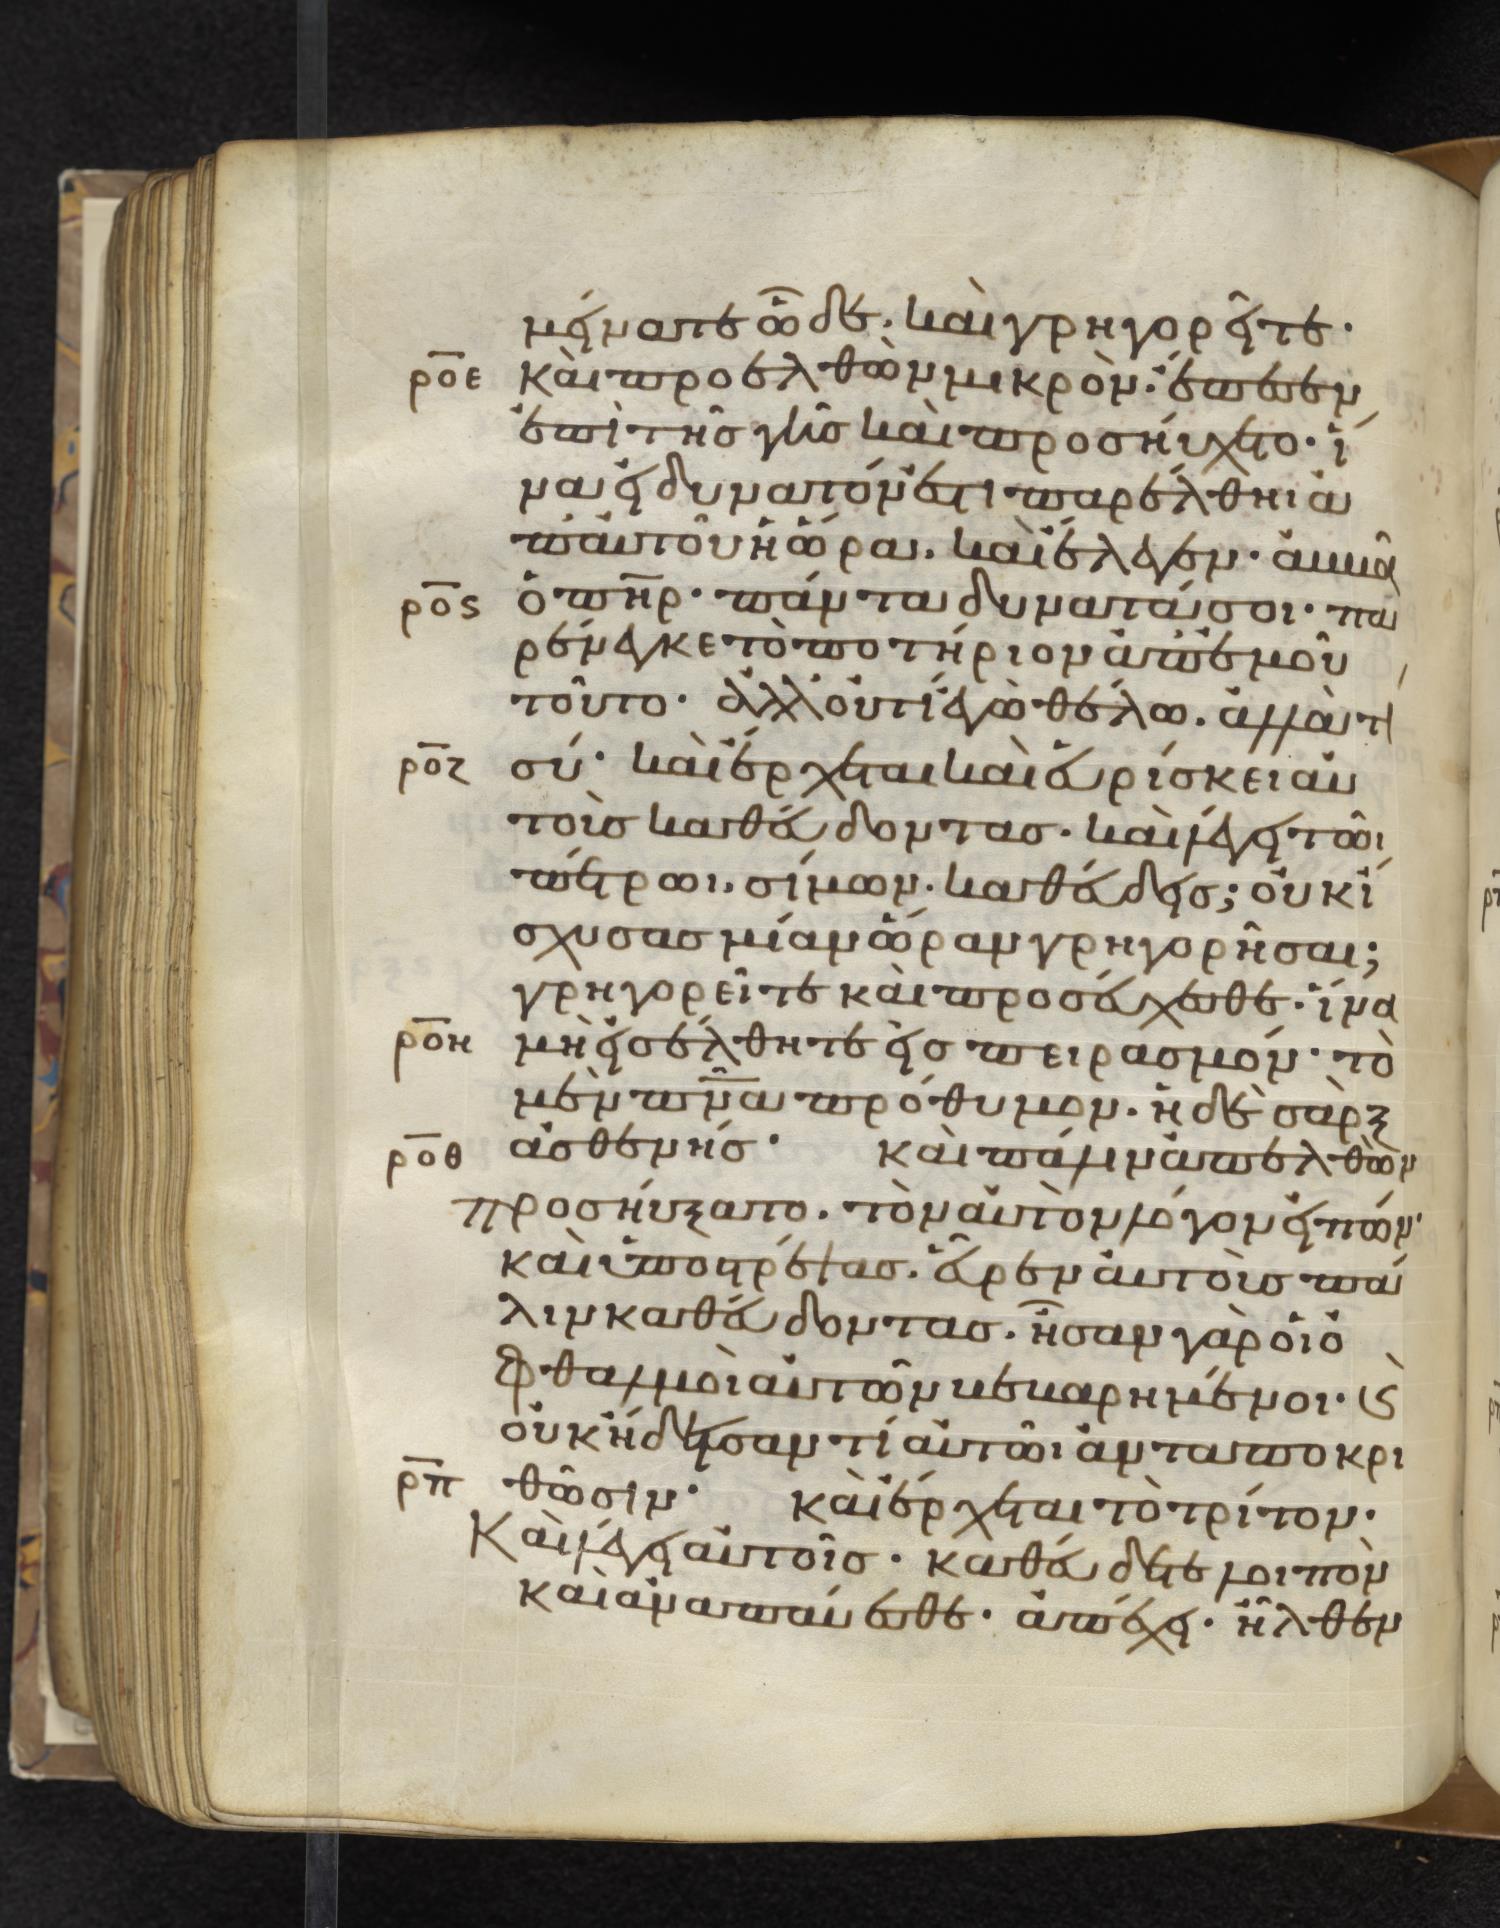 μείνατε ὧδε. καὶ γρηγορεῖτε·
ρο̅ε καὶ προελθὼν μικρὸν· ἔπεσεν
ἐπὶ τῆς γῆς καὶ προσηύχετο· ἵ
να εἰ δυνατόν ἐστι παρέλθηι ἀ
π' αὐτοῦ ἡ ὥρα. καὶ ἔλεγεν· ἀββᾶ
ρο̅ς ὁ πη̅ρ· πάντα δυνατά σοι· πα
ρένεγκε τὸ ποτήριον ἀπ' ἐμοῦ
τοῦτο· ἀλλ' οὐ τί ἐγὼ θέλω. ἀλλὰ τί
ρο̅ζ σύ· καὶ ἔρχεται καὶ εὑρίσκει αὐ
τοὺς καθεύδοντας. καὶ λέγει τῶι
πέτρωι. σίμων. καθεύδεις; οὐκ ἴ
σχυσας μίαν ὥραν γρηγορῆσαι;
γρηγορεῖτε καὶ προσεύχεσθε. ἵνα
ρο̅η μὴ εἰσέλθητε εἰς πειρασμόν· τὸ
μὲν πν̅α πρόθυμον. ἡ δὲ σὰρξ
ρο̅θ ἀσθενής· καὶ πάλιν ἀπελθὼν
προσηύξατο. τὸν αὐτὸν λόγον εἰπών·
καὶ ὑποστρέψας. εὗρεν αὐτοὺς πά
λιν καθεύδοντας. ἦσαν γὰρ οἱ ὀ
φθαλμοὶ αὐτῶν βεβαρημένοι· ϗ
οὐκ ἤδεισαν τί αὐτῶι ἀνταποκρι
ρ̅π θῶσιν· καὶ ἔρχεται τὸ τρίτον·
Καὶ λέγει αὐτοῖς· καθεύδετε λοιπὸν
καὶ ἀναπαύεσθε· ἀπέχει· ἦλθεν